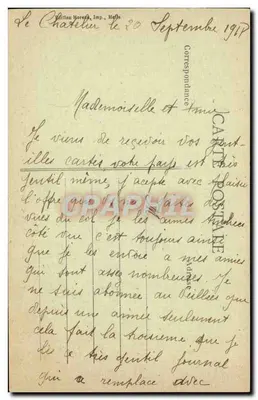 Le Chatelier le 20 Septembre 1917
Correspondance
CARTE POSTALE
Adresse
Mademoiselle et amie
Je viens de recevoir vos gent-
illes cartes votre pays est très
gentil même, j'accepte avec plaisir
l'offre que
vues du col je les aimes timbrées
côté vue c'est toujours ainsi
que je les envoie a mes amies
qui sont assez nombreuses. Je
ne suis abonnée au Veillées que
depuis une année seulement
cela fait la troisieme que je
lis ce très gentil journal
qui a remplacé avec